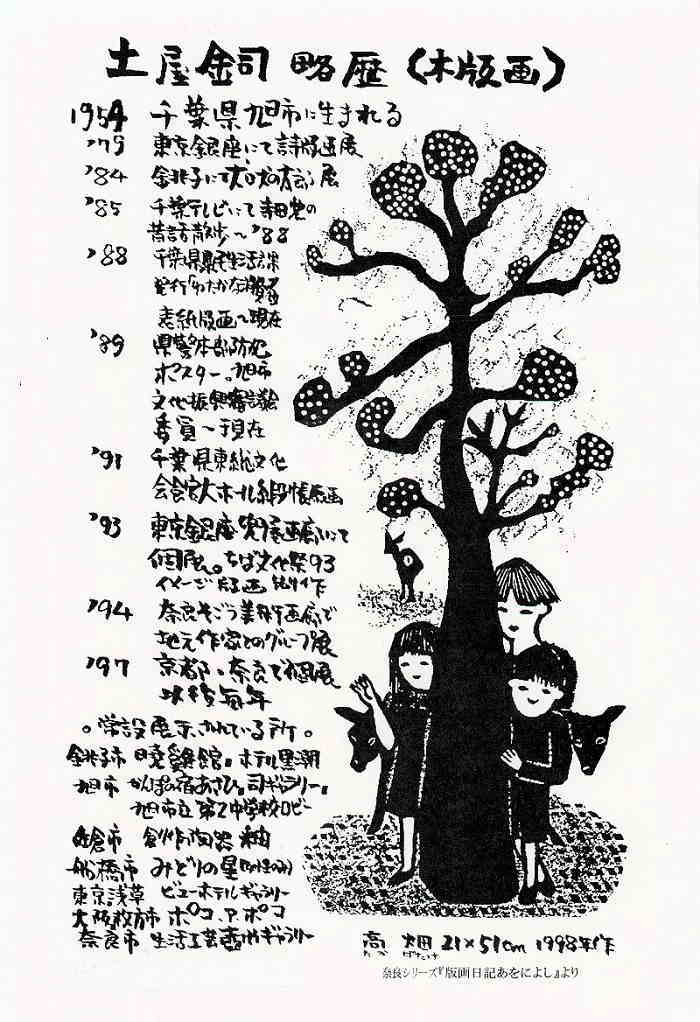 土屋金司 略歴 (木版画)
1954 千葉県旭市に生まれる
'79 東京銀座にて詩版画展
'84 銚子にて犬吠の有郎展
'85 千葉テレビにて寺田党の
昔話散歩〜'88
'88 千葉県県民生活課
発行「ゆたかな
表紙版画〜現在
'89 県警本部防犯
ポスター。旭市
文化振興審議会
委員〜現在
'91 千葉県東総文化
会館大ホール緞帳原画
'93 東京銀座 画廊にて
個展。ちば文化祭93
イメージ版画制作
'94 奈良そごう美術画廊で
地元作家とのグループ展
'97 京都、奈良で個展
以後毎年
。常設展示されている所。
銚子市 暁鶏館。ホテル黒潮
旭市 かんぽの宿あさひ。司ギャラリー。
旭市立第2中学校ロビー
佐倉市 創作陶器 釉
船橋市 みどりの星
東京浅草 ビューホテルギャラリー
大阪枚方市 ポコ.ア.ポコ
奈良市 生活工芸 ギャラリー
高畑 21×51cm 1998年作
たかばたけ
奈良シリーズ『版画日記あをによし』より